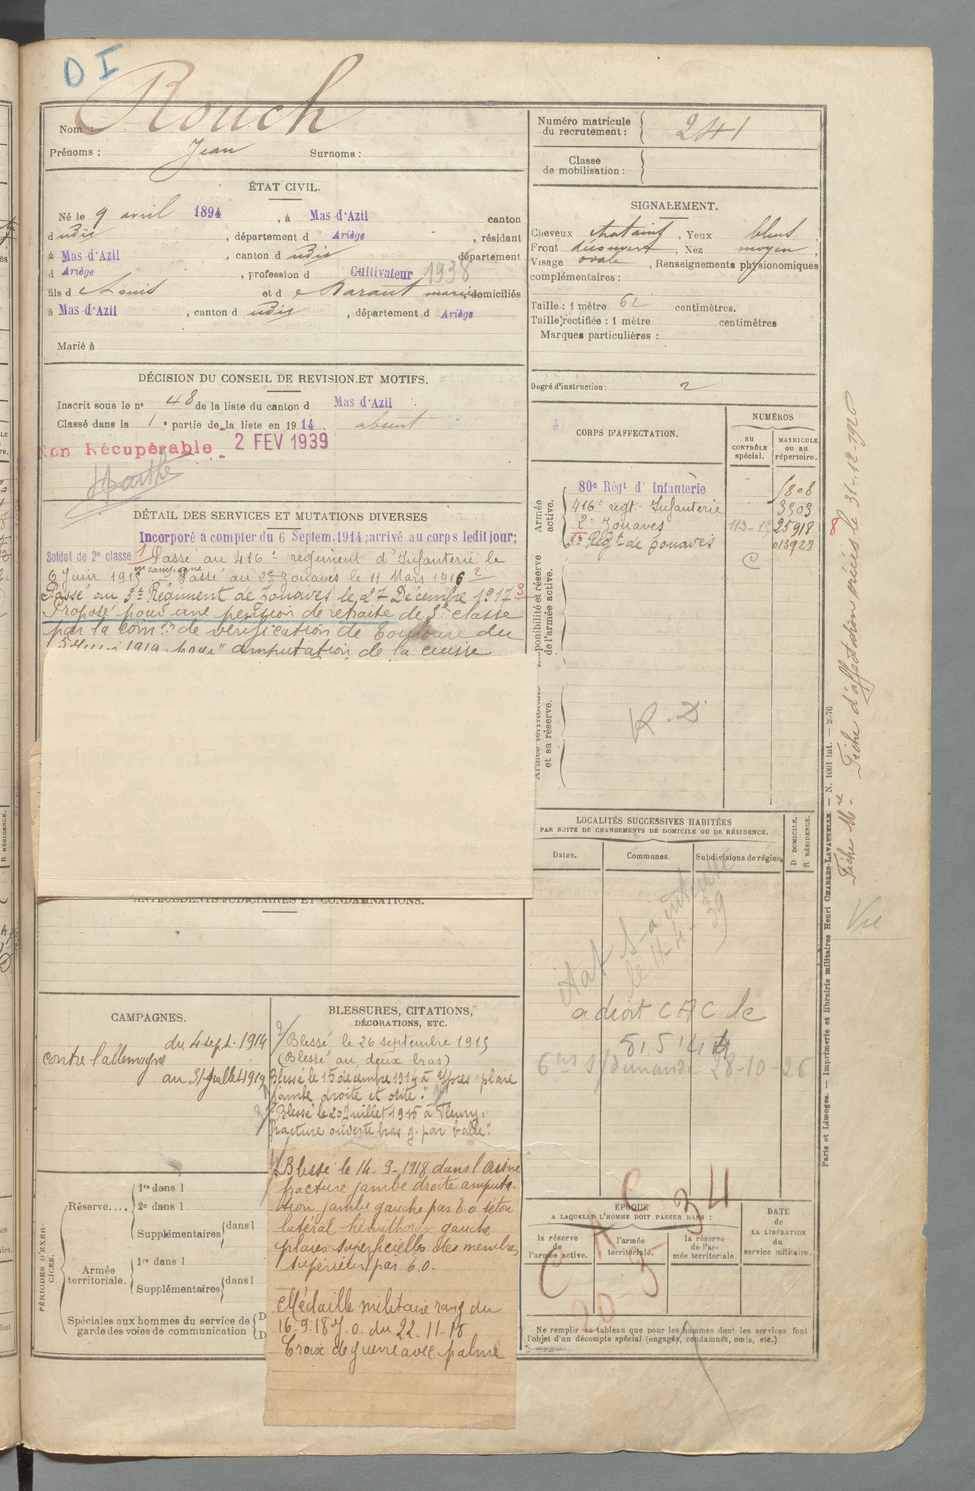 D I
Nom : Rouch
Prénoms : Jean Surnoms :
ÉTAT CIVIL.
Né le 9 avril 1894, à Mas-d'Azil canton
d udit, département d Ariège, résidant
à Mas-d'Azil, canton d udit département
d Ariège, profession d Cultivateur 1938
fils d e Louis et d e Baraut marie domiciliés
à Mas-d'Azil, canton d udit, département d Ariège
Marié à
DÉCISION DU CONSEIL DE REVISION ET MOTIFS.
Inscrit sous le n° 48 de la liste du canton d Mas-d'Azil
Classé dans la 1e partie de la liste en 1914 absent
Non Récupérable 2 FEV 1939
DÉTAIL DES SERVICES ET MUTATIONS DIVERSES
Incorporé a compter du 6 Septem. 1914; arrivé au corps ledit jour;
Soldat de 2e classe Passé au 416e régiment d'Infanterie le
6 Juin 1915 en campagne Passé au 2e Zouaves le 11 Mars 1916
Passé au 3e Régiment de Zouaves le 27 Décembre 1917
Proposé pour une pension de retraite de 3e classe
par la Comon de vérification de Toulouse du
1919 pour "amputation de la cuisse
ANTÉCÉDENTS JUDICIAIRES ET CONDAMNATIONS.
CAMPAGNES.
contre l'allemagne
du 4 sept. 1914
au 31 Juillet 1919
BLESSURES, CITATIONS,
DÉCORATIONS, ETC.
Blessé le 26 septembre 1915
(Blessé au deux bras)
Blessé le 15 décembre 1914 à Ypres "plaie
jambe droite et otite."
Blessé le 20 Juillet 1915 à Fleury:
fracture ouverte bras g. par balle".
Blessé le 14-9-1918 dans l'Aisne
fracture jambe droite amputa-
tion jambe gauche par E.O. séton
latéral gauche
plaies superficielles des membres
supérieurs par E.O.
Médaille militaire rang du
16-9-18 J.O. du 22-11-18
Croix de guerre avec palme
PÉRIODES D'EXERCICES.
Réserve....
1re dans l
2e dans l
Supplémentaires dans l
Armée territoriale.
1re dans l
Supplémentaires dans l
Spéciales aux hommes du service de
garde des voies de communication
D
D
Numéro matricule
du recrutement : 241
Classe
de mobilisation :
SIGNALEMENT.
Cheveux chatains, Yeux bleus
Front découvert, Nez moyen
Visage ovale, Renseignements physionomiques
complémentaires :
Taille : 1 mètre 62 centimètres.
Taille rectifiée : 1 mètre centimètres
Marques particulières :
Degré d'instruction : 2
CORPS D'AFFECTATION.
NUMÉROS
AU CONTRÔLE spécial.
MATRICULE OU AU répertoire.
Armée active.
80e Régt d'Infanterie 1808
416e régt Infanterie 3503
2e Zouaves 25918
3e Régt de Zouaves 013923
Disponibilité et réserve
de l'armée active.
Armée territoriale
et sa réserve.
R. D.
LOCALITÉS SUCCESSIVES HABITÉES
PAR SUITE DE CHANGEMENTS DE DOMICILE OU DE RÉSIDENCE.
Dates.
Communes.
Subdivisions de région.
D DOMICILE.
R RÉSIDENCE.
a droit CAC le
8.5.44
28-10-26
C A C
20-3-34
ÉPOQUE
A LAQUELLE L'HOMME DOIT PASSER DANS :
la réserve de l'armée active.
l'armée territoriale.
la réserve de l'armée territoriale.
DATE
de
LA LIBÉRATION
du
service militaire.
Ne remplir ce tableau que pour les hommes dont les services font
l'objet d'un décompte spécial (engagés, condamnés, omis, etc.)
Paris et Limoges. — Imprimerie et librairie militaires Henri CHARLES-LAVAUZELLE — N. 1001 int. — 2.76
Fiche Mre = Fiche d'affectation créées le 31-12-1920
Vu